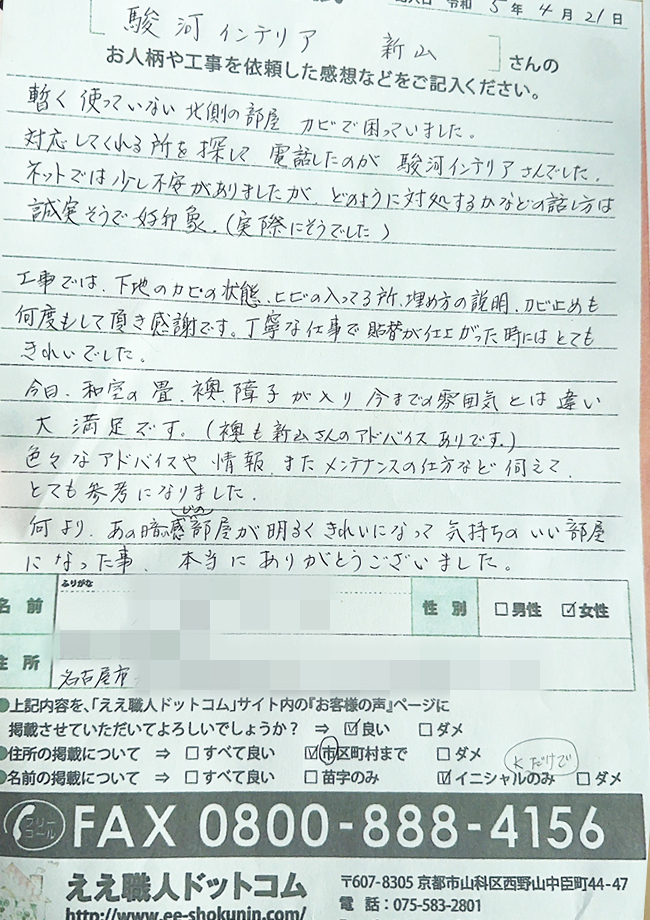 令和 5 年 4 月 21 日
駿河インテリア 新山 さんの
お人柄や工事を依頼した感想などをご記入ください。
暫く使っていない北側の部屋 カビで困っていました。
対応してくれる所を探して 電話したのが 駿河インテリアさんでした。
ネットでは少し不安がありましたが、どのように対処するかなどの話し方は
誠実そうで好印象。(実際にそうでした)
工事では、下地のカビの状態、ヒビの入ってる所、埋め方の説明、カビ止めも
何度もして頂き感謝です。丁寧な仕事で貼替が仕上がった時にはとても
きれいでした。
今日、和室の畳、襖、障子が入り 今までの雰囲気とは違い
大満足です。(襖も新山さんのアドバイスありです。)
色々なアドバイスや情報、またメンテナンスの仕方など伺えて、
とても参考になりました。
何より、あの暗感じの部屋が明るくきれいになって 気持ちのいい部屋
になった事、本当にありがとうございました。
ふりがな
名前
性別 □男性 ☑女性
住所
名古屋市
●上記内容を、「ええ職人ドットコム」サイト内の『お客様の声』ページに
掲載させていただいてよろしいでしょうか? ⇒ ☑良い □ダメ
●住所の掲載について ⇒ □すべて良い ☑市区町村まで □ダメ
Kだけで
●名前の掲載について ⇒ □すべて良い □苗字のみ ☑イニシャルのみ □ダメ
フリーコール
FAX 0800-888-4156
ええ職人ドットコム
http://www.ee-shokunin.com/
〒607-8305 京都市山科区西野山中臣町44-47
電話:075-583-2801